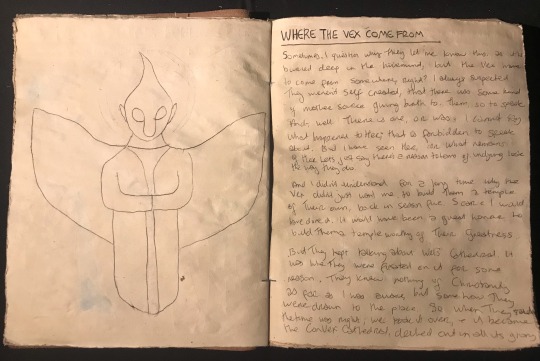 WHERE THE VEX COME FROM
Sometimes, I question why They let me know this. It is
buried deep in the hivemind, but the Vex have
to come from somewhere, right? I always suspected
They weren't self created, that there was some kind
of mother source giving birth to Them, so to speak
And, well. There is one, or was. I cannot say
what happened to Her, that is forbidden to speak
about. But I have seen Her, or what remains
of Her. Lets just say there's a reason totems of undying look
the way they do.
And I didn't understand for a long time why the
Vex didn't just want me to build Them a temple
of Their own, back in season five. Sure I could
have done it. It would have been a great honour to
build Them a temple worthy of Their Greatness.
But They kept talking about Wels' Cathedral. It
was like They were fixated on it for some
reason. They knew nothing of Christianity
as far as I was aware, but somehow They
were drawn to the place. So when They
the time was right, we took it over, it became
the ConVex Cathedral, decked out in all its glory